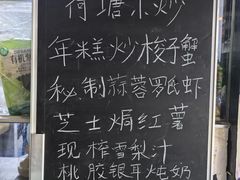 荷塘小炒
年糕炒梭子蟹
秘.制蒜蓉罗氏虾
芝士焗红薯
现榨雪梨汁
桃胶银耳炖奶